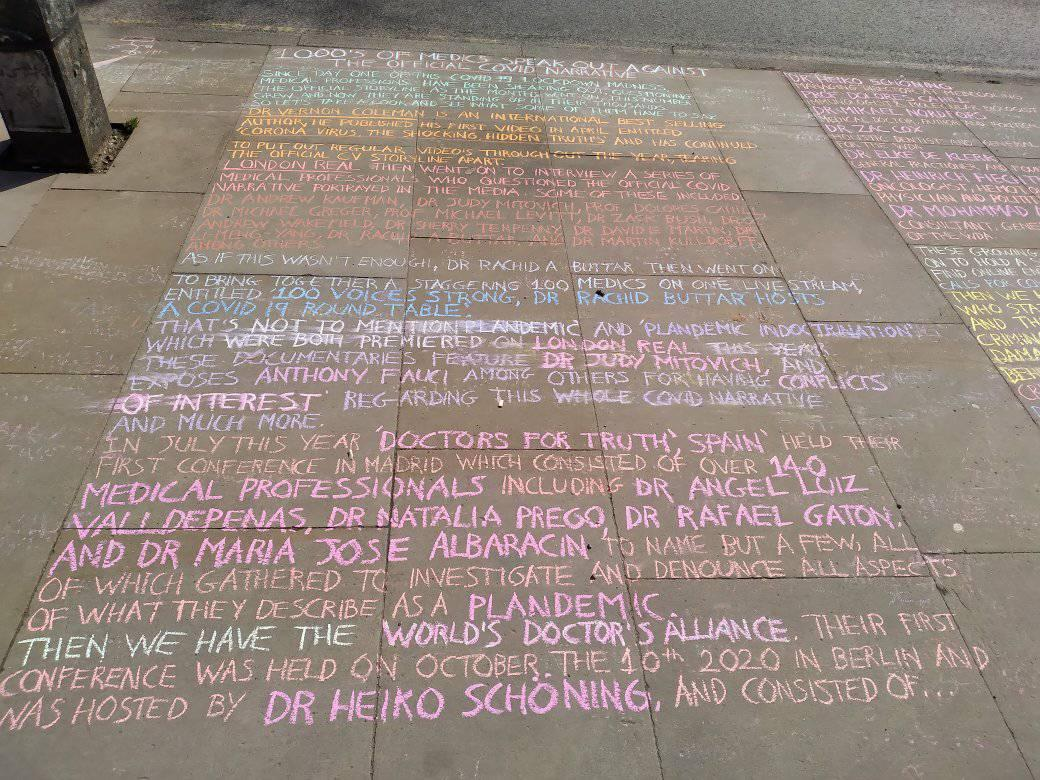 1000'S OF MEDICS SPEAK OUT AGAINST
THE OFFICIAL COVID NARRATIVE
SINCE DAY ONE OF THIS COVID 19 LOCKDOWN MADNESS
MEDICAL PROFESSIONALS HAVE BEEN SPEAKING OUT
THE OFFICIAL STORYLINE. AS THE MONTHS WENT ON
GREW AND NOW THEY ARE STANDING UP IN THEIR
SO LET'S TAKE A LOOK AND SEE WHAT SOME OF THEM HAVE TO SAY
DR VERNON COLEMAN IS AN INTERNATIONAL BEST SELLING
AUTHOR, HE PUBLISHED HIS FIRST VIDEO IN APRIL ENTITLED
'CORONA VIRUS, THE SHOCKING HIDDEN TRUTHS' AND HAS CONTINUED
TO PUT OUT REGULAR VIDEO'S THROUGH OUT THE YEAR, TEARING
THE OFFICIAL CV STORYLINE APART.
LONDON REAL THEN WENT ON TO INTERVIEW A SERIES OF
MEDICAL PROFESSIONALS WHO QUESTIONED THE OFFICIAL COVID
NARRATIVE PORTRAYED IN THE MEDIA. SOME OF THESE INCLUDED
DR ANDREW KAUFMAN, DR JUDY MITOVICH, PROF DOLORES CAHILL
DR MICHAEL GREGER, PROF MICHAEL LEVITT, DR ZACK BUSH, DR
ANDREW WAKEFIELD, DR SHERRY TENPENNY, DR DAVID E MARTIN, DR
YANG, DR RACHID BUTTAR AND DR MARTIN KULLDORFF,
AMONG OTHERS.
AS IF THIS WASN'T ENOUGH, DR RACHID A BUTTAR THEN WENT ON
TO BRING TOGETHER A STAGGERING 100 MEDICS ON ONE LIVE STREAM,
ENTITLED 100 VOICES STRONG, DR RACHID BUTTAR HOSTS
A COVID 19 ROUND TABLE.
THAT'S NOT TO MENTION PLANDEMIC AND 'PLANDEMIC INDOCTRINATION'
WHICH WERE BOTH PREMIERED ON LONDON REAL THIS YEAR.
THESE DOCUMENTARIES FEATURE DR JUDY MITOVICH, AND
EXPOSES ANTHONY FAUCI AMONG OTHERS FOR HAVING CONFLICTS
OF INTEREST' REGARDING THIS WHOLE COVID NARRATIVE
AND MUCH MORE.
IN JULY THIS YEAR 'DOCTORS FOR TRUTH', SPAIN' HELD THEIR
FIRST CONFERENCE IN MADRID WHICH CONSISTED OF OVER 140
MEDICAL PROFESSIONALS INCLUDING DR ANGEL LUIZ
VALLDEPENAS, DR NATALIA PREGO, DR RAFAEL GATON,
AND DR MARIA JOSE ALBARACIN TO NAME BUT A FEW, ALL
OF WHICH GATHERED TO INVESTIGATE AND DENOUNCE ALL ASPECTS
OF WHAT THEY DESCRIBE AS A PLANDEMIC.
THEN WE HAVE THE WORLD'S DOCTOR'S ALLIANCE. THEIR FIRST
CONFERENCE WAS HELD ON OCTOBER THE 10th 2020 IN BERLIN AND
WAS HOSTED BY DR HEIKO SCHÖNING, AND CONSISTED OF...
DR HEIKO SCHÖNING
DR ZAC COX
DR ELKE DE KLERK
DR HEINRICH
ONCOLOGIST
PHYSICIAN AND
DR MOHAMMAD
CONSULTANT, GENE
OF THE WDA
THESE GROWING
ON TO NEED A
FIND ONLINE
CALLS FOR
THEN WE
WHO STA
AND TH
CRIMIN
DAMA
BEN